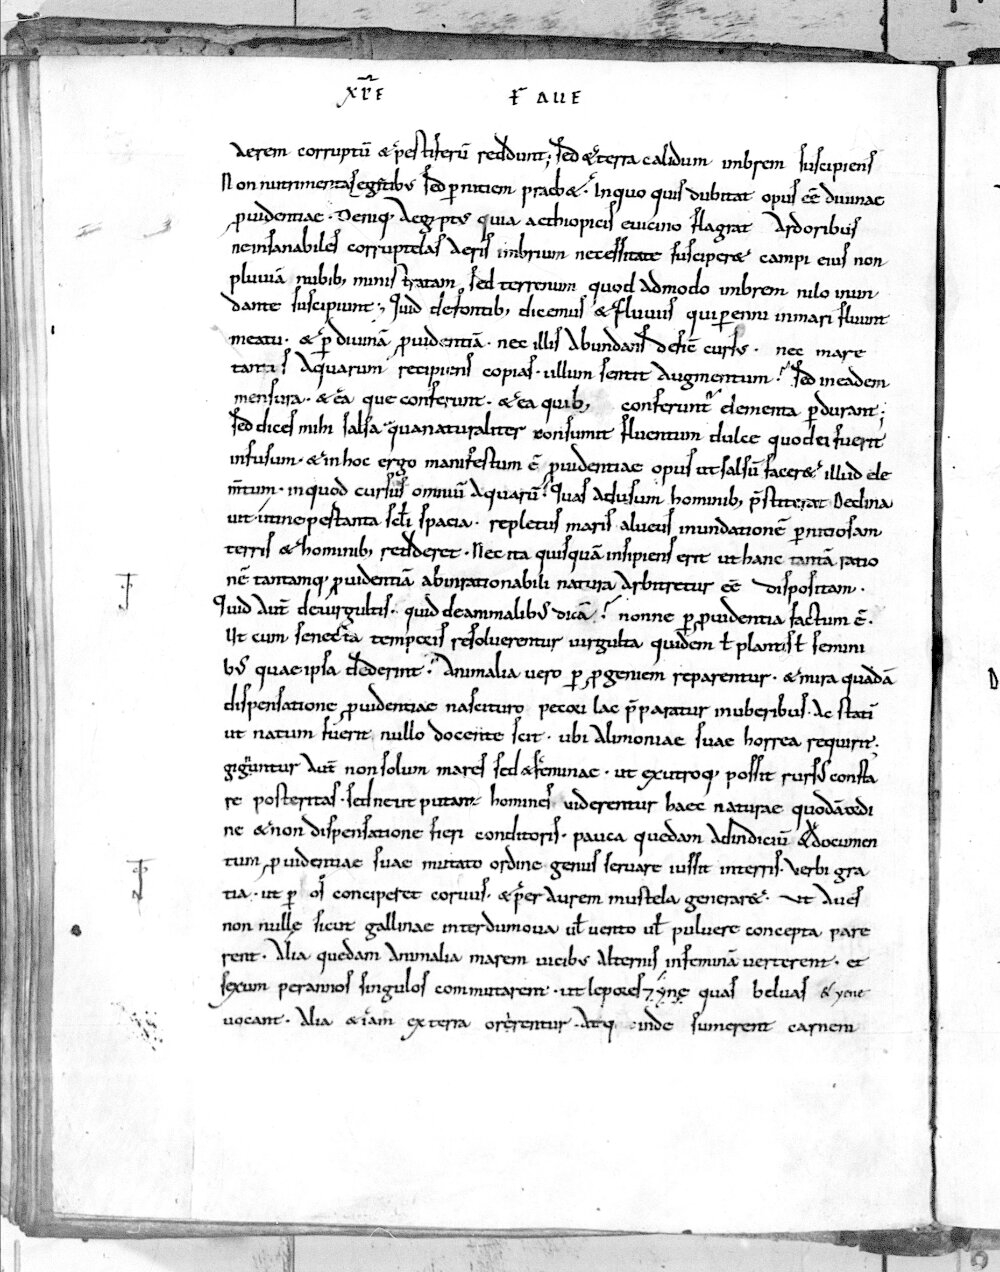 XPE FAUE
aerem corruptū & pestiferū reddunt; sed & terra calidum imbrem suscipiens
Non nutrimenta segetibus sed pernitiem praeb&. In quo quis dubitat opus eē diuinae
prouidentiae. Deniq; Aegyptus quia aethiopicis euicino flagrat Ardoribus
ne insanabiles corruptelas Aeris imbrium necessitate susciper& campi eius non
pluuiā nubib; ministratam sed terrenum quodadmodo imbrem nilo inun
dante suscipiunt; Quid de fontib; dicemus & fluuiis qui perenni in mari fluunt
meatu. & p diuinā prouidentiā. nec illis Abundans deficē cursus. nec mare
tantas Aquarum recipiens copias. ullum sentit Augmentum? Sed in eadem
mensura. & ea que conferunt. & ea quib; conferunt elementa pdurant;
Sed dices mihi salsa qua naturaliter consumit fluentum dulce quod ei fuerit
infusum. & in hoc ergo manifestum ē puidentiae opus ut salsū facer& illud ele
m̄tum. in quod cursus omniū Aquarū? Quas Ad usum hominib; p̄stiterat Declina
uit itine pestanta scłi spacia. repletus maris alueus inundationē pnitiosam
terris & hominib; redderet. Nec ita quisquā insipiens erit ut hanc tantā ratio
nē tantamq; prouidentiā ab inrationabili natura Arbitretur eē dispositam.
Quid Aut̄ de uirgultis. quid de animalibus dicā? nonne p prouidentia factum ē.
Ut cum senecta temporis resoluerentur uirgulta quidem ł plantis ł semini
bus quae ipsa dederint? Animalia uero p pgeniem reparentur. & mira quadā
dispensatione prouidentiae nascituro pecori lac p̄paratur in uberibus. Ac statī
ut natum fuerit nullo docente scit. ubi Alimoniae suae horrea requirit.
gignuntur Aut̄ non solum mares sed & feminae. ut ex utroq; possit rursus consta
re posteritas. sed ne ut putant homines uiderentur haec naturae quodā ordi
ne & non dispensatione fieri conditoris. pauca quedam Ad indiciū & documen
tum prouidentiae suae mutato ordine genus seruare iussit in terris. Verbi gra
tia. ut p os conciperet coruus. & per Aurem mustela generar&. ut Aues
non nulle sicut gallinae interdum oua uł uento uł puluere concepta pare
rent. Alia quedam Animalia marem uicibus Alternis in feminā uerterent. et
sexum per annos singulos commutarent. ut lepores 7 yene quas beluas & yene
uocant. Alia & iam ex terra orerentur. Atq; inde sumerent carnem